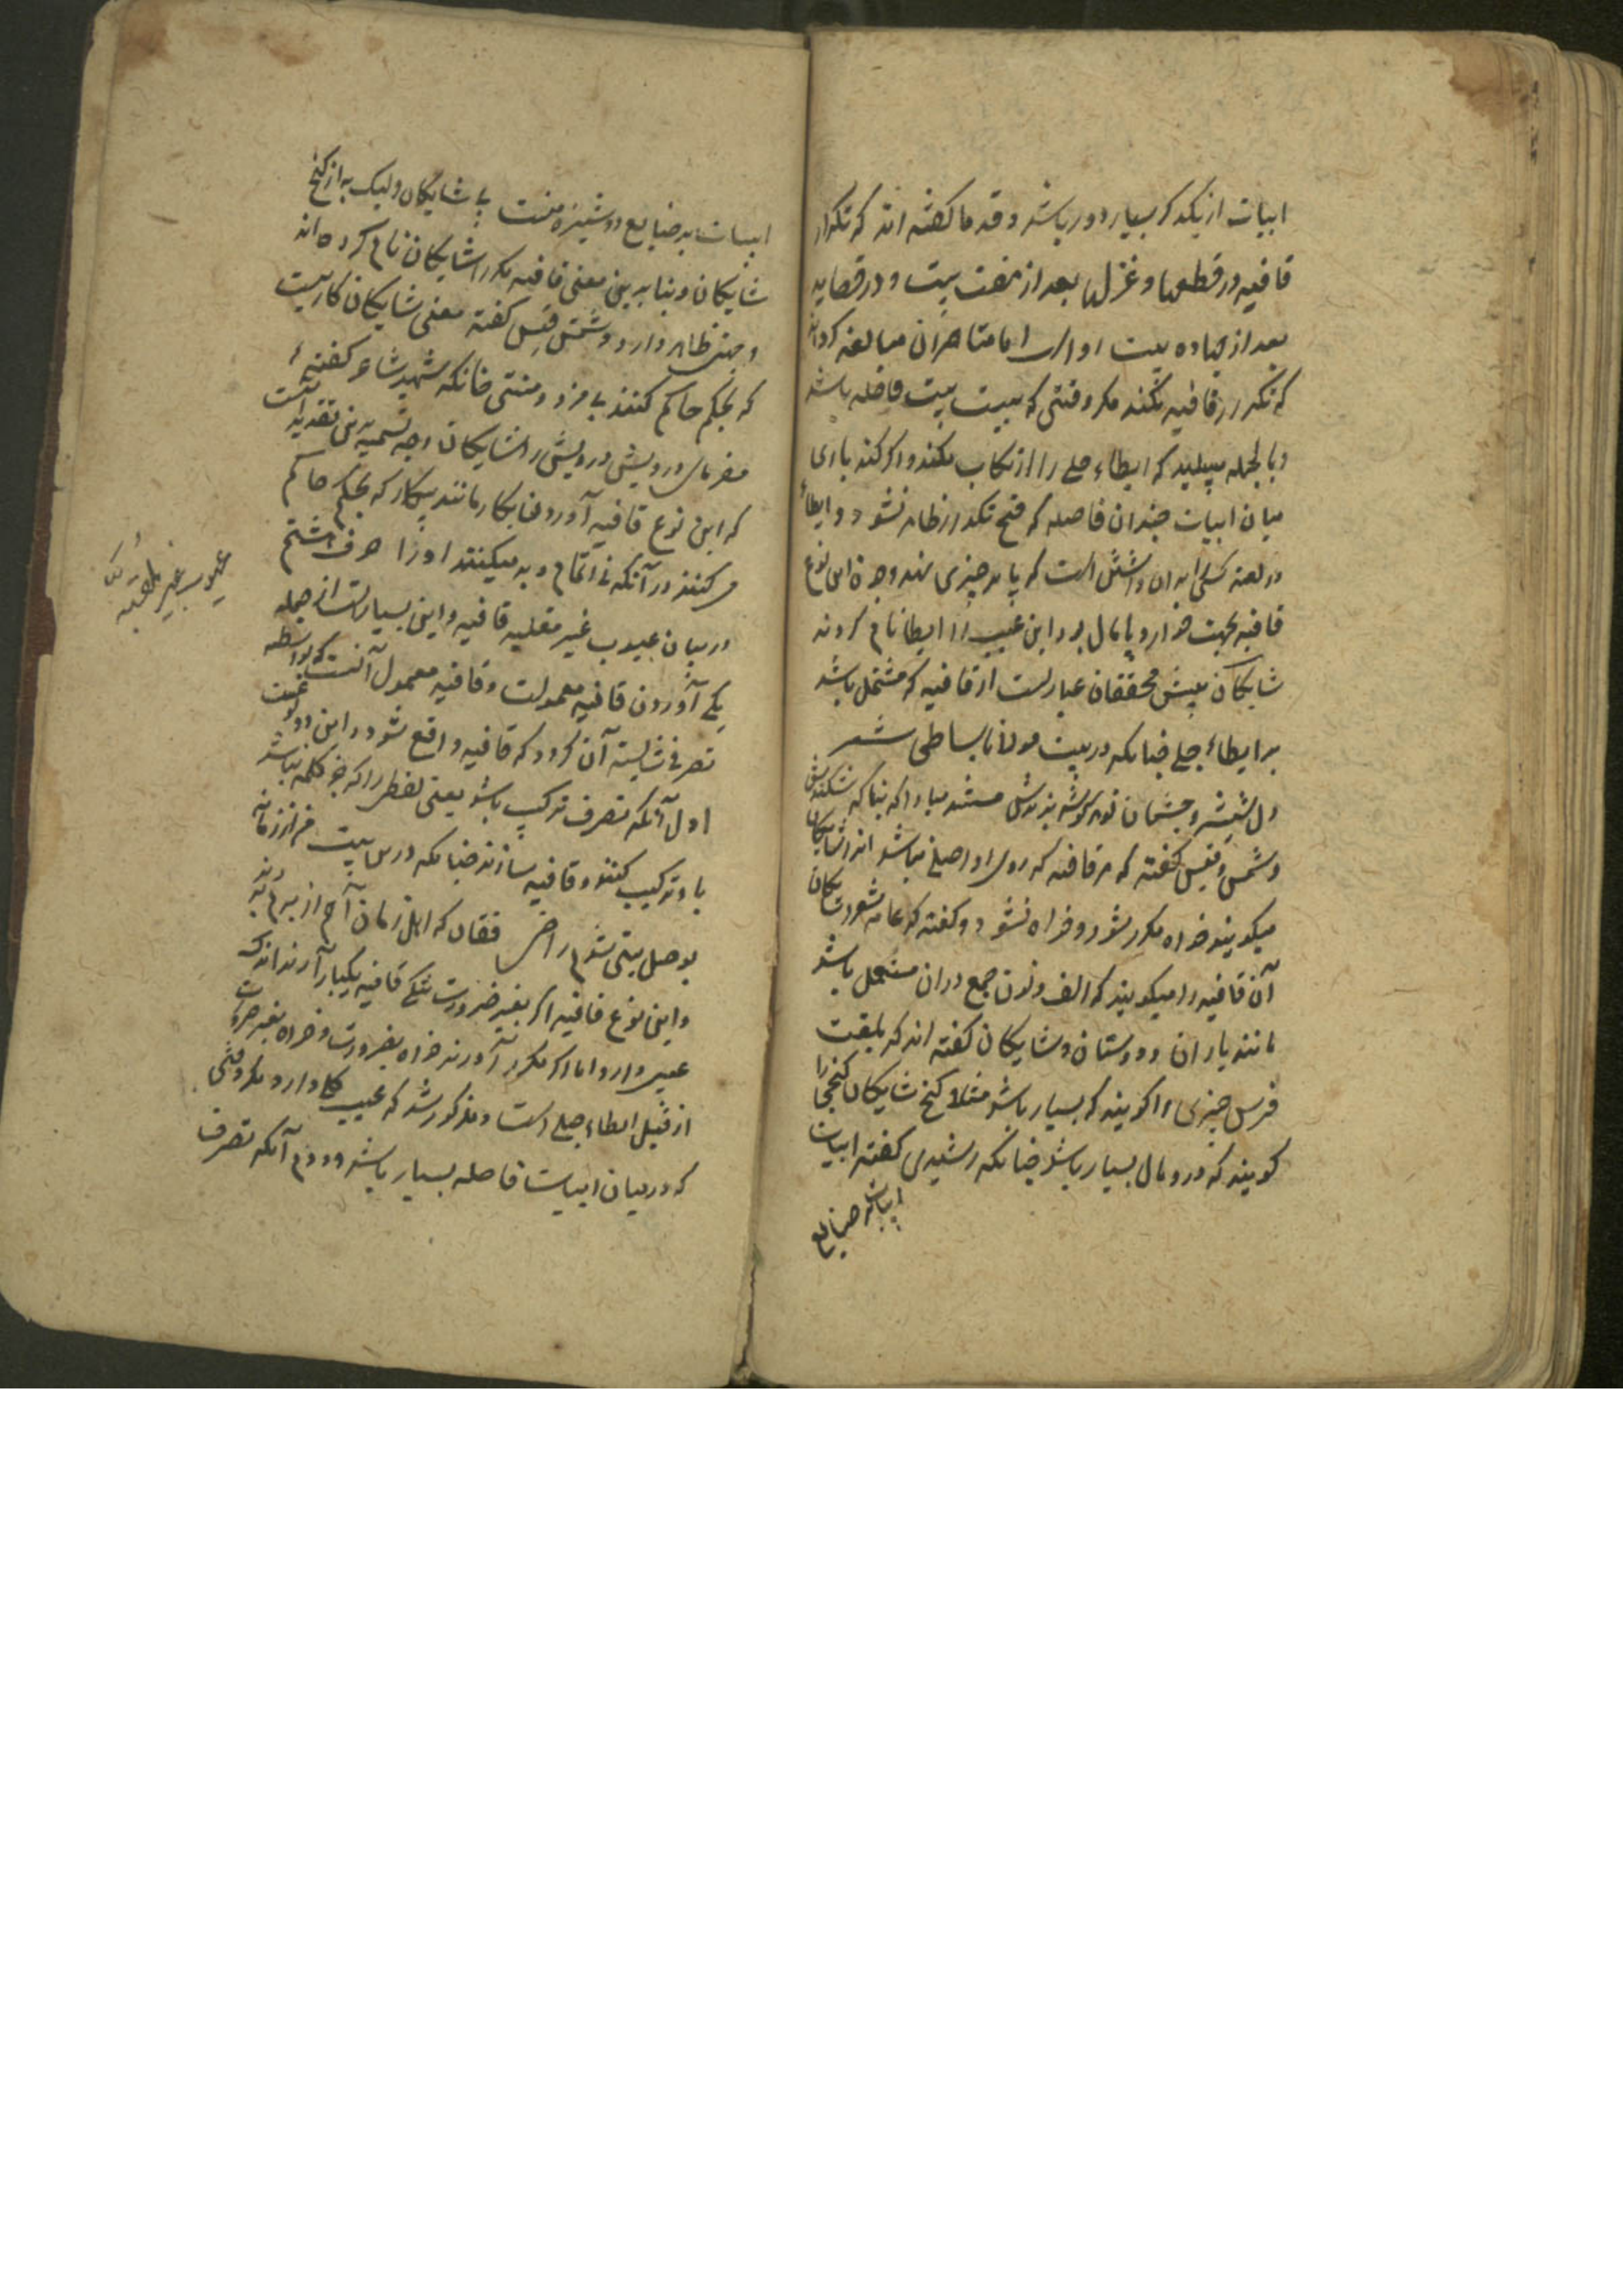 ابیات از یکدکر بسیار دور باشد و قدما کفته اند که تکرار
قافیه در قطعها و غزلها بعد از هفت بیت و در قصاید
بعد از چهارده بیت رواست اما متاخران مبالغه کرده اند
که تکرار قافیه نکنند مکر وقتی که بیست بیت فاصله باشد
و بالجمله میباید که ایطاء جلی را ارتکاب نکنند و اکر کنند باری
میان ابیات چندان فاصله که قبح تکرار ظاهر نشود و ایطاء
در لغت کسی را بران داشتن است که پا بر چیزی نهد و چون این نوع
قافیه بجهت خوار و پامال بود این عیب را ایطا نام کردند
شایکان پیش محققان عبارتست از قافیه که مشتمل باشد
بر ایطاء جلی چنانکه در بیت مولانا بساطی شعر
دل شیشه و چشمان تو هر کوشه برندش مستند مبادا که بناکه شکنندش
و شمس قیس کفته که هر قافیه که روی او اصلی نباشد انرا شایکان
میکویند خواه مکرر شود و خواه نشود و کفته که عامه شعرا شایکان
آن قافیه را میکویند که الف و نون جمع دران مستعمل باشد
مانند یاران و دوستان و شایکان کفته اند که بلغت
فرس چیزی را کویند که بسیار باشد مثلا کنج شایکان کنجی را
کویند که درو مال بسیار باشد چنانکه رشیدی کفته ابیات
ابیات بر صنایع
ابیات بر صنایع دوشیزه منست بی شایکان ولیک به از کنج
شایکان و بنا برین معنی قافیه مکرر را شایکان نام کرده اند
وجهی ظاهر دارد و شمس قیس کفته معنی شایکان کاریست
که بحکم حاکم کنند بی مزد و منتی چنانکه شهید شاعر کفته ع
مفرمای درویش را شایکان وجه تسمیه برین تقدیر آنست
که این نوع قافیه آوردن بکار مانند بیکار که بحکم حاکم
می کنند در آنکه نی اتمام و بد میکنند او را حرف هشتم
در بیان عیوب غیر ملقبه قافیه و این بسیارست از جمله
یکی آوردن قافیه معمولست و قافیه معمول آنست که بواسطه
تصرفی شایسته آن کردد که قافیه واقع شود و این دو نوعست
اول آنکه تصرف ترکیب باشد یعنی لفظی را که جزو کلمه نباشد
با او ترکیب کنند و قافیه سازند چنانکه درین بیت
بوصل بیتی شوم راضی فغان که اهل زمان آن هم از
و این نوع قافیه اکر بغیر ضرورت یکی قافیه یکبار آرند اندک
عیبی دارد اما اکر مکرر آورند خواه بضرورت و خواه بغیر ضرورت
از قبیل ایطاء جلی است و مذکور شد که عیب کلی دارد مکر وقتی
که در میان ابیات فاصله بسیار باشد و دوم آنکه تصرف
عیوب غیر ملقبه